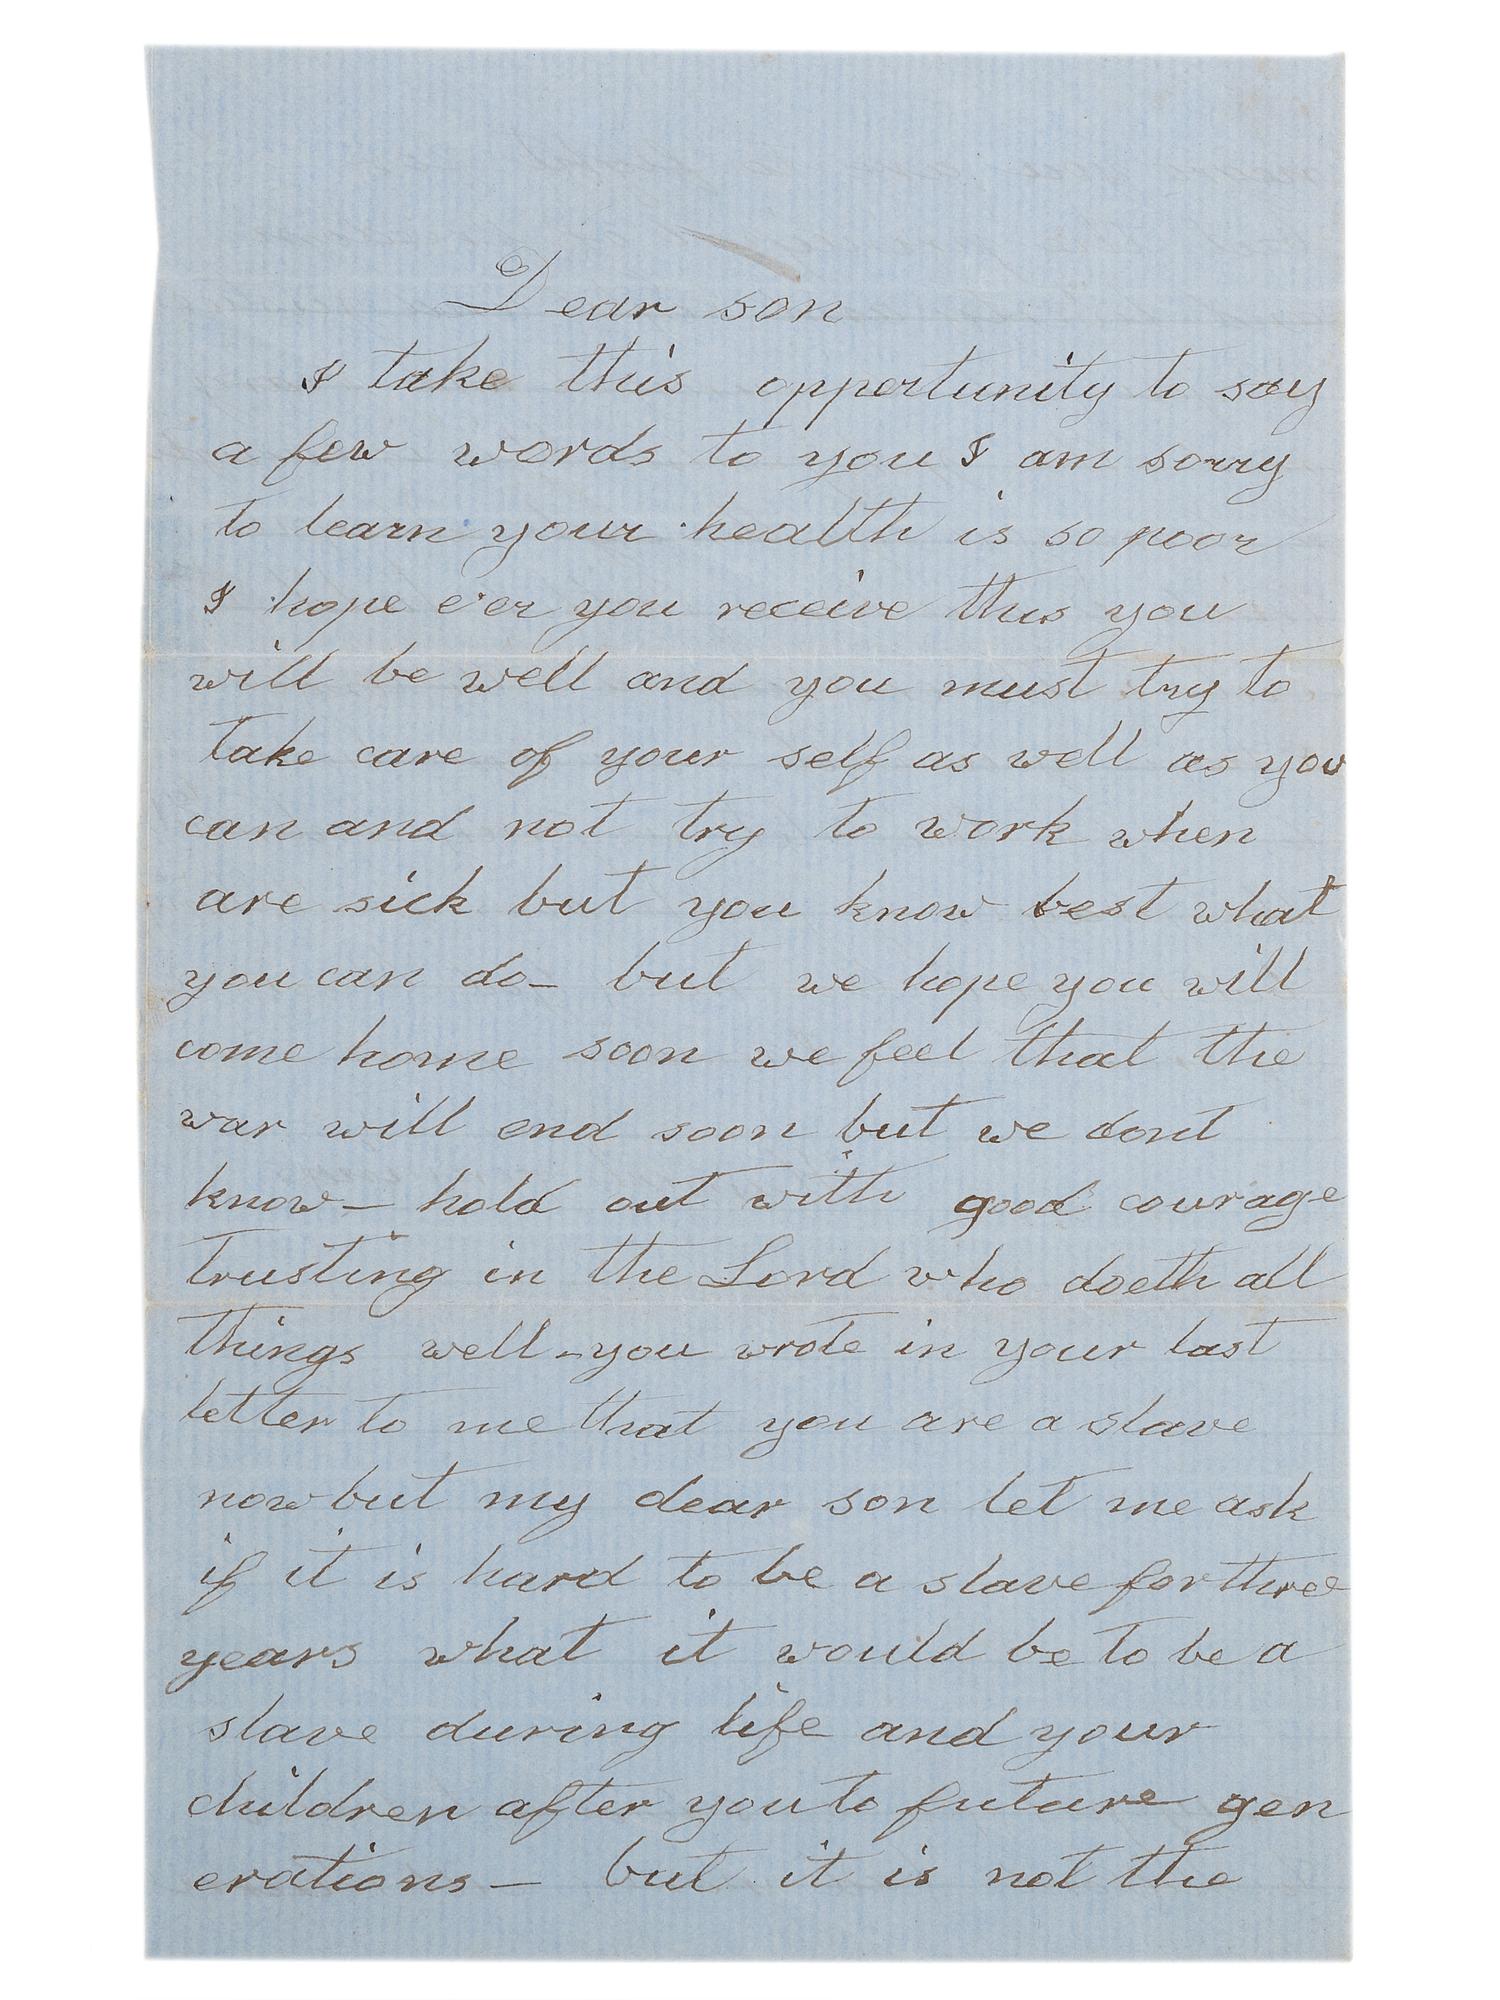 Dear son
I take this opportunity to say
a few words to you I am sorry
to learn your health is so poor
I hope e'er you receive this you
will be well and you must try to
take care of your self as well as you
can and not try to work when
are sick but you know best what
you can do– but we hope you will
come home soon we feel that the
war will end soon but we dont
know – hold out with good courage
trusting in the Lord who doeth all
things well – you wrote in your last
letter to me that you are a slave
now but my dear son let me ask
if it is hard to be a slave for three
years what it would be to be a
slave during life and your
children after you to future gen
erations – but it is not the